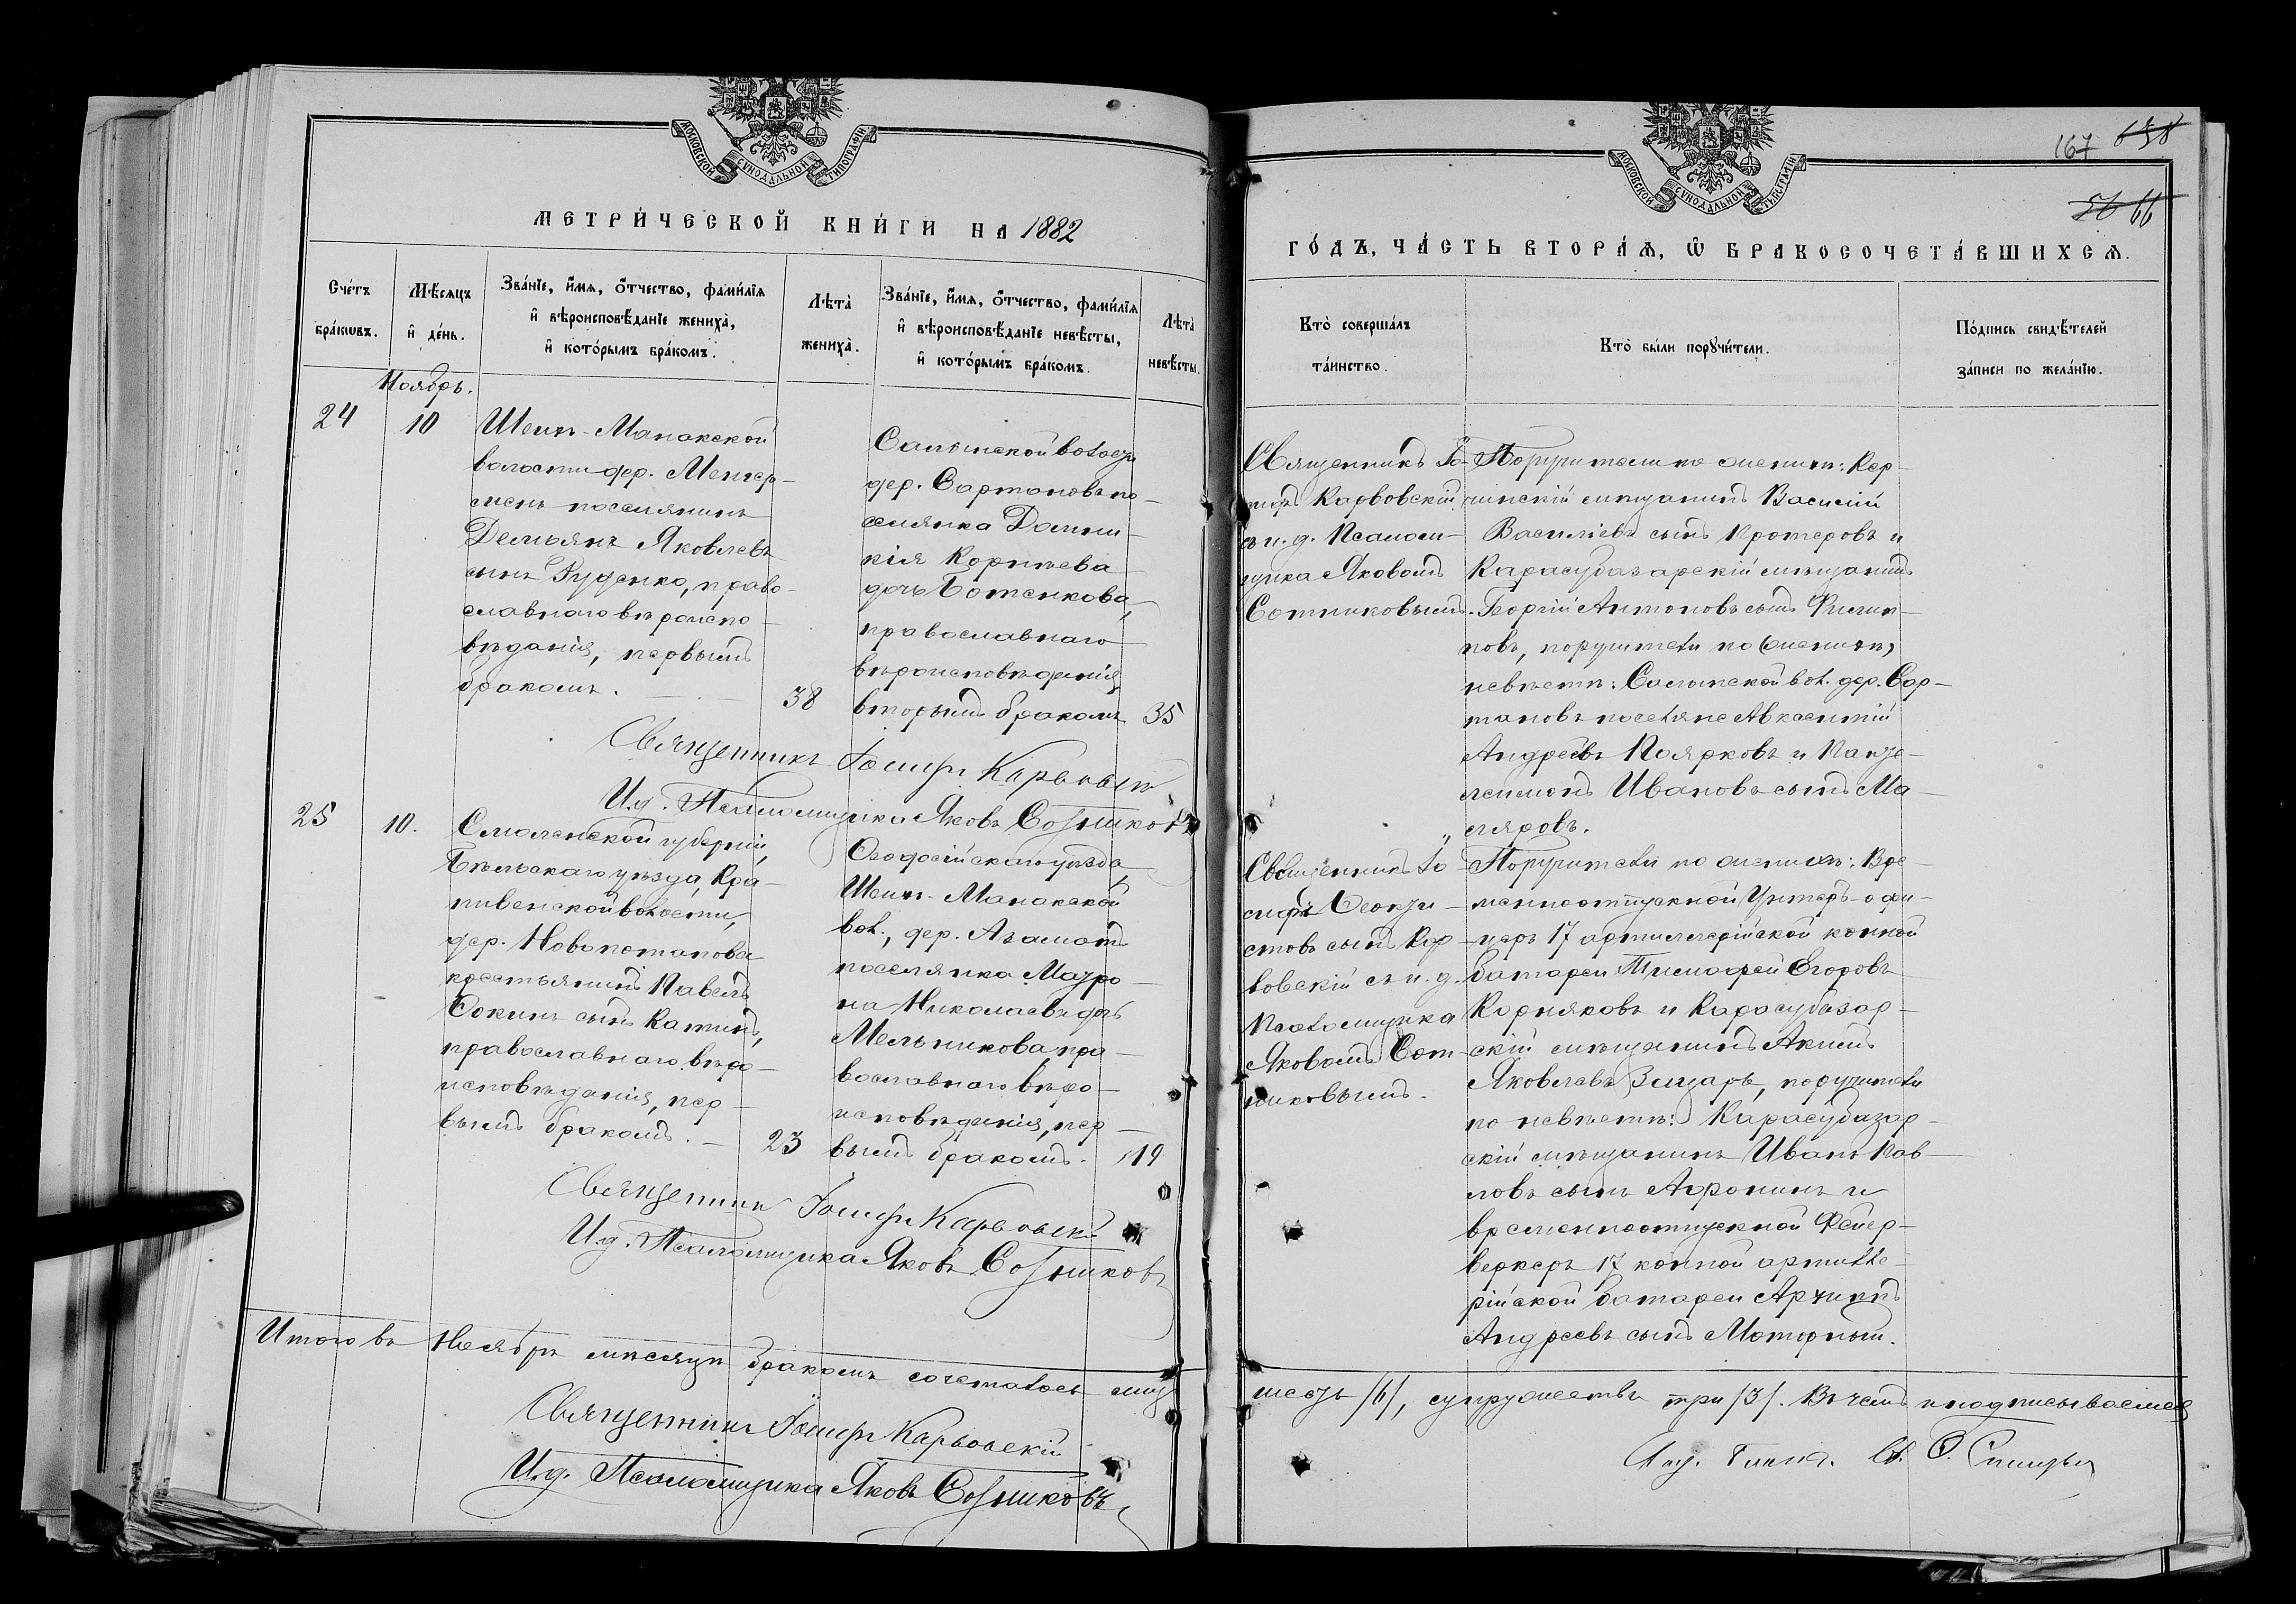 МОСКОВСКОЙ СѴНОДАЛЬНОЙ ТИПОГРАФІИ
МЕТРИ́ЧЕСКОЙ КНИ́ГИ НА 1882
Сче́тъ бра́кωвъ.
Мѣ́сяцъ и҆ де́нь.
Зва́нїе, и҆́мѧ, ѻ҆́тчество, фами́лїѧ и҆ вѣроисповѣ́данїе жениха̀, и҆ кото́рымъ бра́комъ.
Лѣта̀ жениха̀.
Зва́нїе, и҆́мѧ, ѻ҆́тчество, фами́лїѧ и҆ вѣроисповѣ́данїе невѣ́сты, и҆ кото́рымъ бра́комъ.
Лѣта̀ невѣ́сты.
Ноябрь.
24
10
Шеихъ-Манакской
волости дер. Менгер-
менъ поселянинъ
Демьянъ Яковлевъ
сынъ Руденко, право-
славнаго вѣроиспо-
вѣданія, первымъ
бракомъ.
38
Салынской волости
дер. Сартановъ по-
селянка Домни-
кія Корнѣева
дочьБотенкова,
православнаго
вѣроисповѣданія,
вторымъ бракомъ
35
Священникъ Іосифъ Карвовскій
И.д. Псаломщика Яковъ Сотниковъ
25
10.
Смоленской губерніи,
Бѣльскаго уѣзда, Кра-
пивенской волости,
дер. Новопотапова
крестьянинъ Павелъ
Фокинъ сынъ Катинъ,
православнаго вѣро-
исповѣданія, пер-
вымъ бракомъ.
23
Ѳеодосійскаго уѣзда,
Шеихъ-Манакской
вол., дер. Азаматъ
поселянка Матро-
на Николаевъ дочь
Мельникова, пра-
вославнаго вѣро-
исповѣданія, пер-
вымъ бракомъ.
19
Священникъ Іосифъ Карвовскій
И.д. Псаломщика Яковъ Сотниковъ
Итого въ Ноябрѣ мѣсяцѣ бракомъ сочеталось лицъ
Священникъ Іосифъ Карвовскій
И.д. Псаломщика Яковъ Сотниковъ
МОСКОВСКОЙ СѴНОДАЛЬНОЙ ТИПОГРАФІИ
167
638
56 66
ГО́ДЪ, ЧА́СТЬ ВТОРА́Ѧ, Ѡ҆ БРАКОСОЧЕТА́ВШИХСѦ.
Кто̀ соверша́лъ та́инство.
Кто̀ бы́ли порꙋчи́тели.
По́дпись свидѣ́телей за́писи по жела́нїю.
Священникъ Іо-
сифъ Карвовскій
съ и. д. Псалом-
щика Яковомъ
Сотниковымъ.
Поручители по женихѣ: Кер-
чинскій мѣщанинъ Василій
Василіевъ сынъ Протеровъ и
Карасубазарскій мѣщанинъ
Георгій Антоновъ сынъ Филип-
повъ, поручители по (женихѣ)
невѣстѣ: Салынской вол. дер. Сар-
тановъ поселяне Авксентій
Андреевъ Поярковъ и Панте-
леимонъ Ивановъ сынъ Ма-
сляровъ.
Священникъ Іо-
сифъ
стовъ сынъ Кар-
вовскій съ и. д.
Псаломщика
Яковомъ Сот-
никовымъ.
Поручители по женихѣ: Вре-
менноотпускной Унтеръ-офи-
церъ 17 артиллерійской конной
батареи Тимофей Егоровъ
Корняковъ и Карасубазар-
скій мѣщанинъ Акимъ
Яковлевъ поручители
по невѣстѣ: Карасубазар-
скій мѣщанинъ Иванъ Пав-
ловъ сынъ Афонинъ и
временноотпускной Фейер-
веркеръ 17 конной артилле-
рійской батареи Архипъ
Андреевъ сынъ Моторный.
шесть /6/, супружествъ три /3/. Въ чемъ и подписываемся